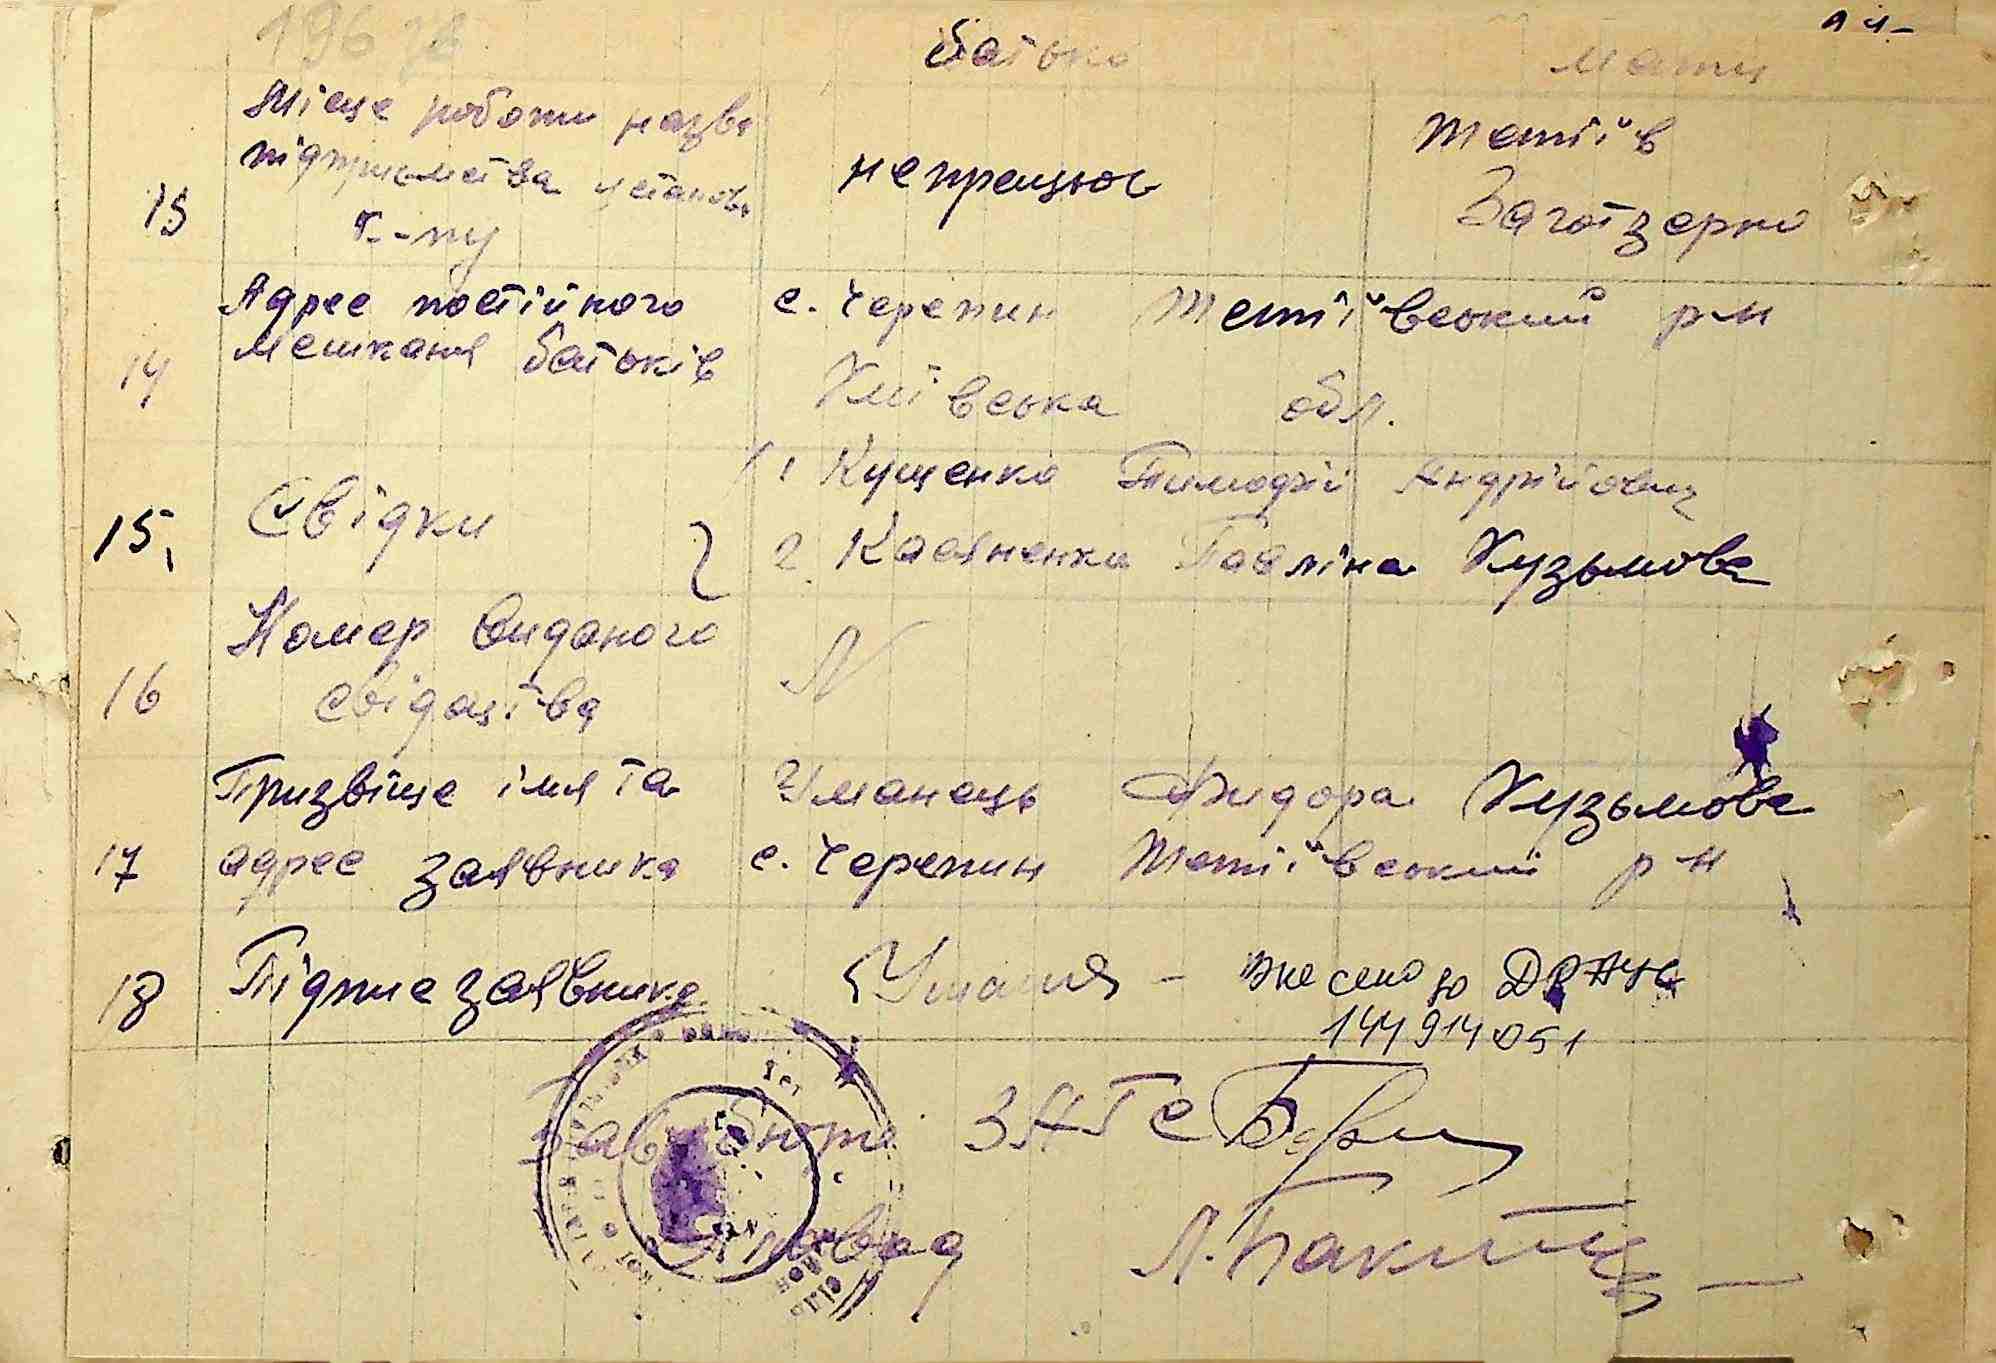 батько мати
13 Місце роботи назва
підприємства установи
к-пу
непрацює
Тетіїв
Заготзерно
14 Адрес постійного
мешканя батьків
с. Черепин Тетіївський р-н
Київська обл.
15. Свідки
1 Кущенко Тимофій Андрійович
2 Касяненко Павліна Кузьмовна
16 Номер виданого
свідоцтва
N
17 Призвіще імя та
адрес заявника
Уманець Фидора Кузьмовна
с. Черепин Тетіївський р-н
18 Підпис заявника
Внесено до ДРАЦС
144914051
Зав бюро ЗАГС
Діловод